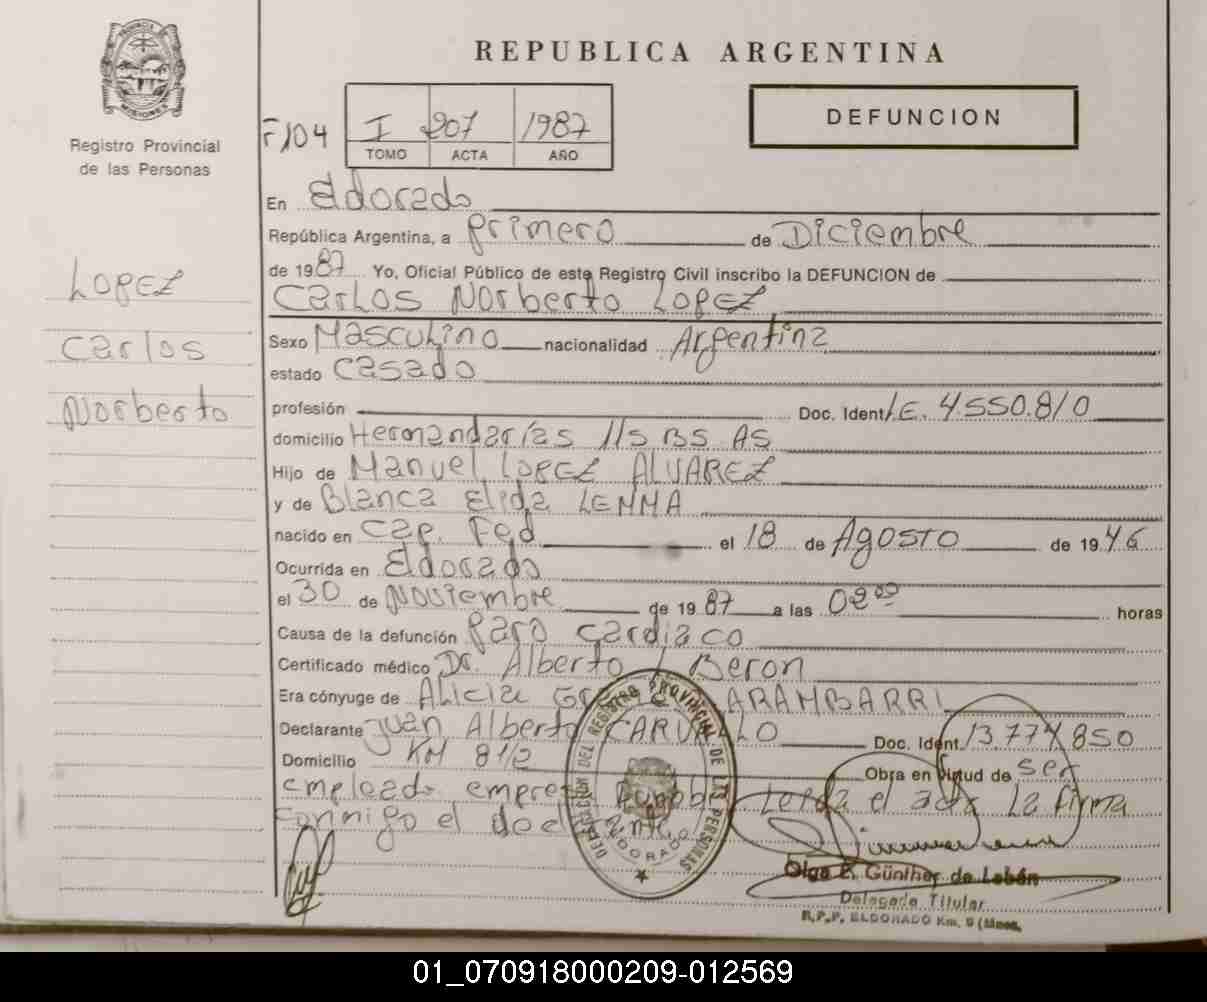 PROVINCIA DE
MISIONES
Registro Provincial
de las Personas
LOPEZ
Carlos
Norberto
REPUBLICA ARGENTINA
F104
I 207 1987
TOMO ACTA AÑO
DEFUNCION
En Eldorado
República Argentina, a primero de Diciembre
de 1987 Yo, Oficial Público de este Registro Civil inscribo la DEFUNCION de
Carlos Norberto LOPEZ
Sexo Masculino nacionalidad Argentina
estado Casado
profesión Doc. Ident L.E. 4.550.810
domicilio Hernandarias 115 BS AS
Hijo de Manuel LOPEZ ALVAREZ
y de Blanca Elida LEMMA
nacido en Cap. Fed el 18 de Agosto de 1946
Ocurrida en Eldorado
el 30 de Noviembre de 1987 a las 02⁰⁰ horas
Causa de la defunción paro cardiaco
Certificado médico Dr. Alberto Beron
Era cónyuge de Alicia ARAMBARRI
Declarante Juan Alberto CARVALLO Doc. Ident. 13.774.850
Domicilio KM 8 1/2 Obra en Virtud de ser
empleado empresa Leida el acta La firma
conmigo el declarante
DELEGACION DEL REGISTRO PROVINCIAL DE LAS PERSONAS
ELDORADO
Olga E. Günther de Lebén
Delegada Titular
R.P.P. ELDORADO Km. 9 (Mnes.
01_070918000209-012569